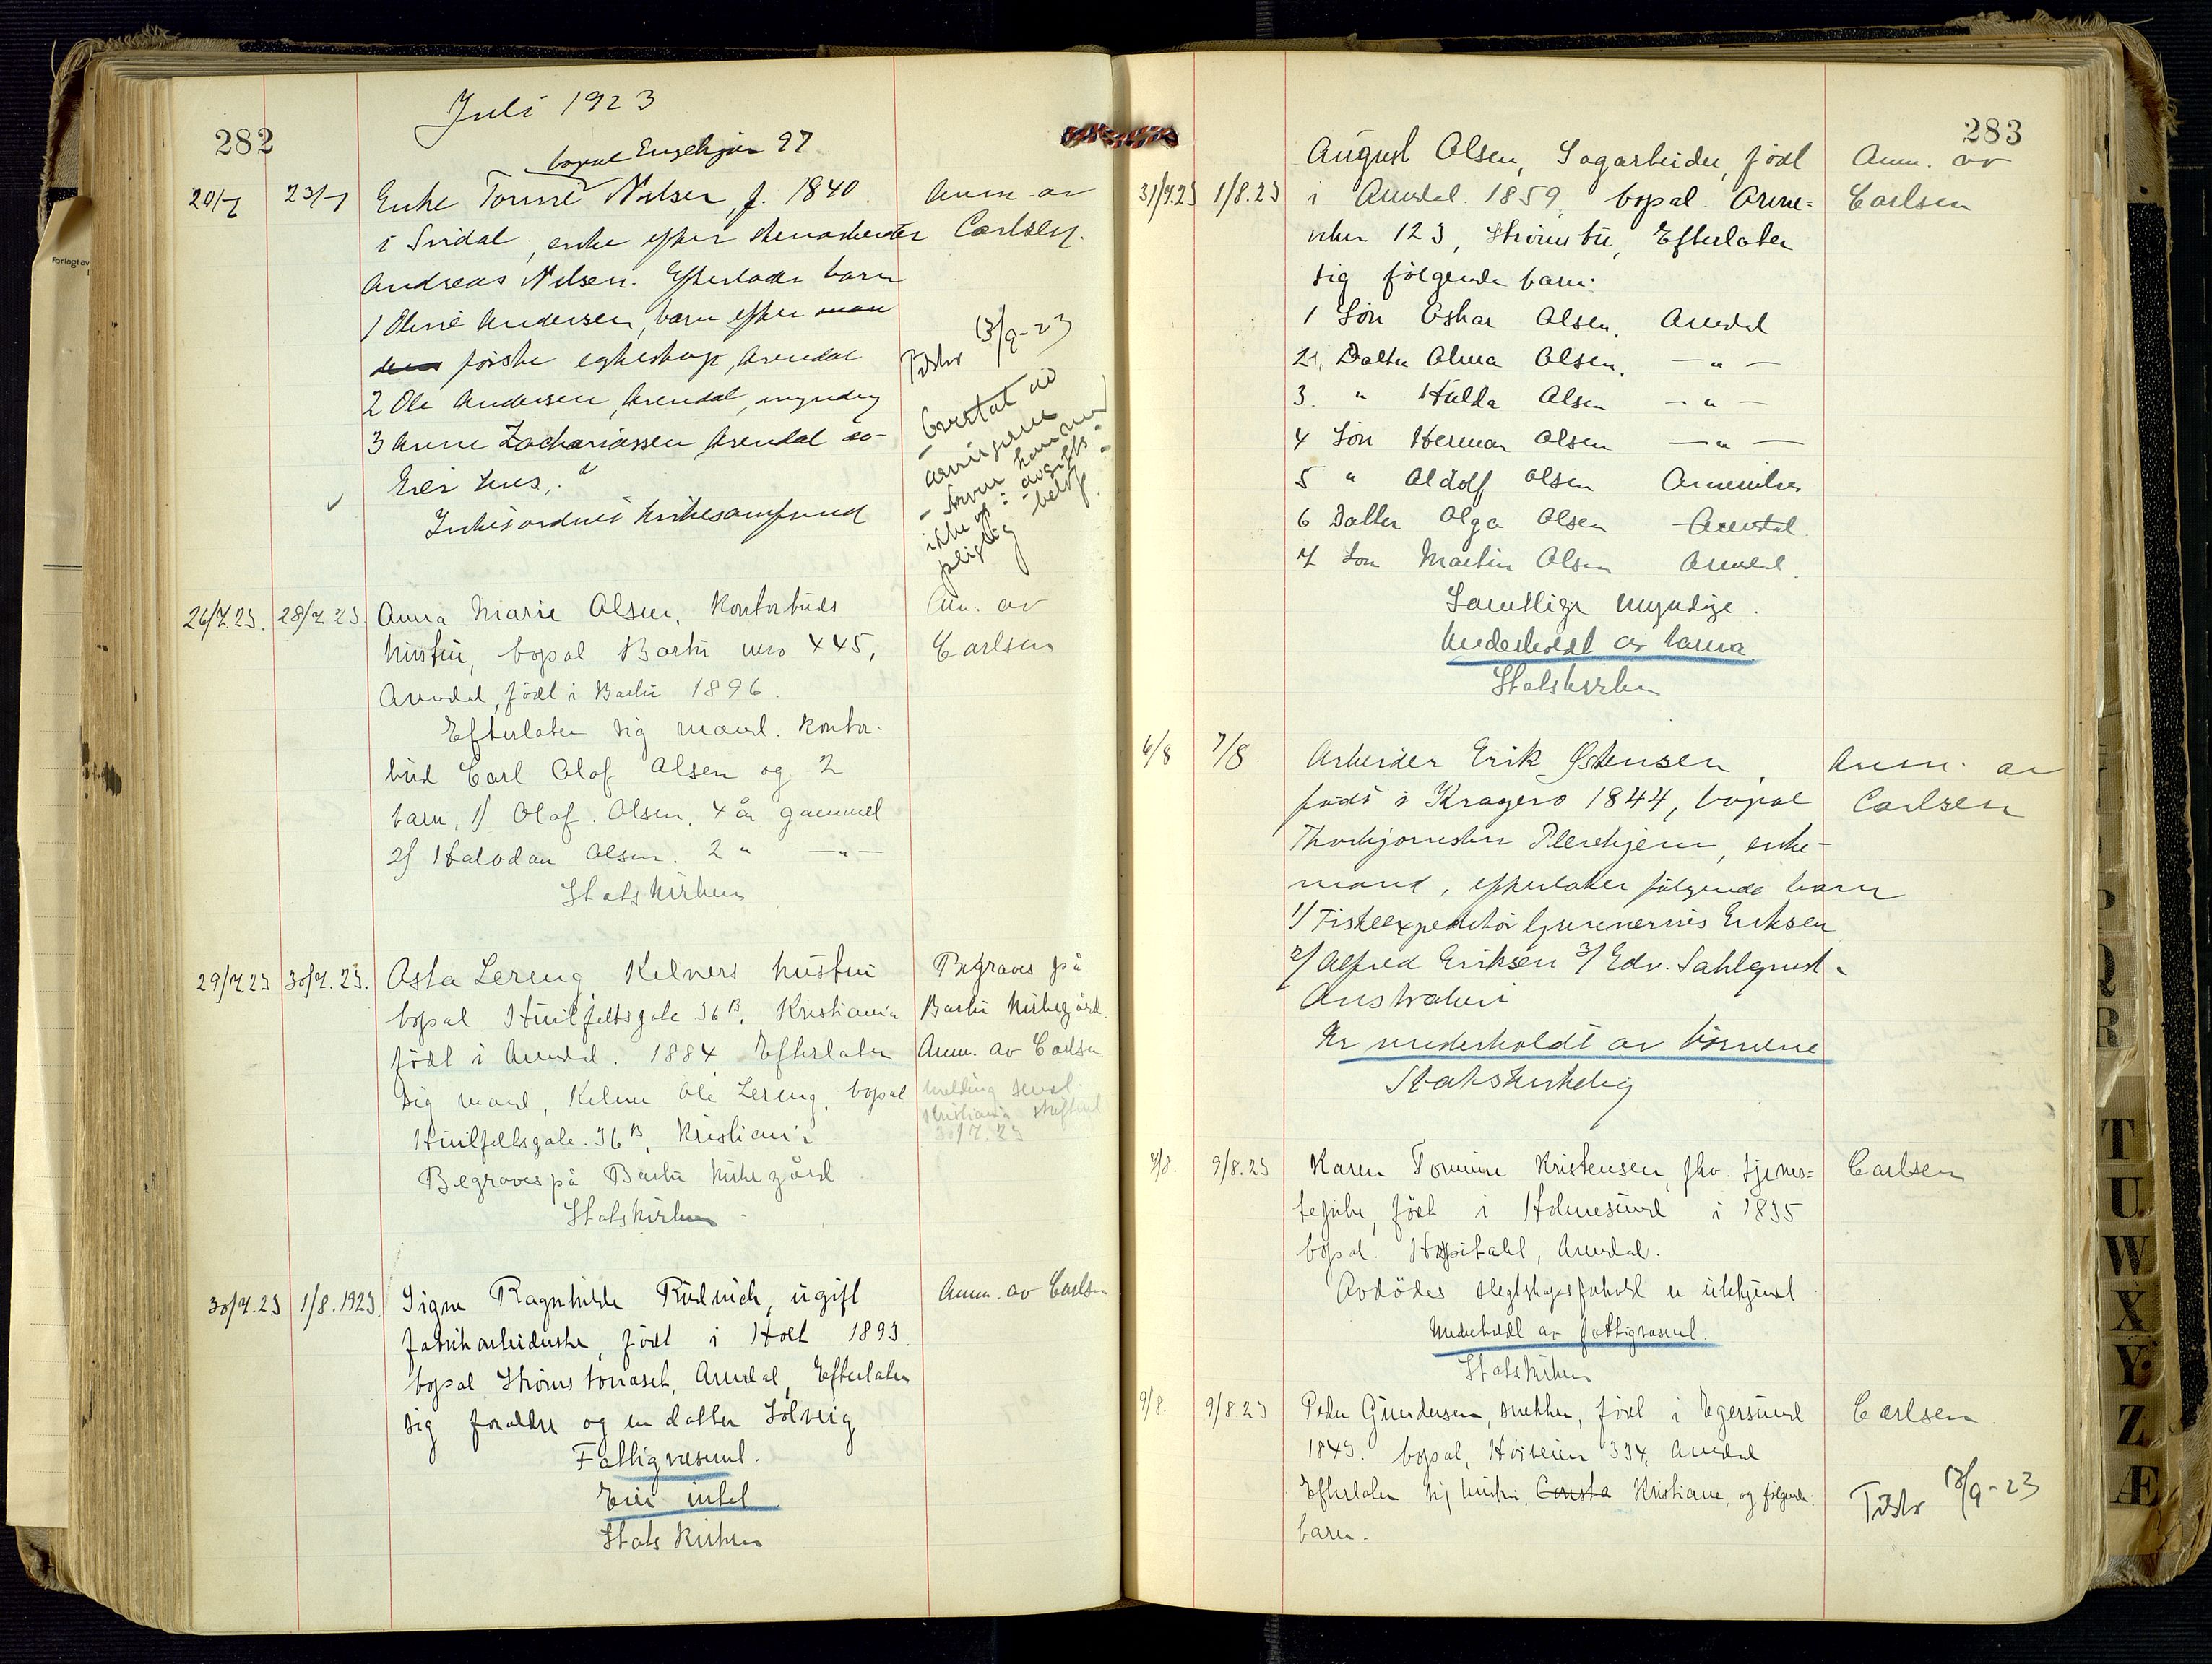 282
Juli 1923
bopæl Engekjær 97
20/7 23/7 Enke Tomine Nilsen, f. 1840 Anm. av
i Svidal, enke efter stenarbeider Carlsen.
Andreas Nilsen. Efterlader barn
1 Oline Andersen, barn efter man
den første egteskap, Arendal
13/9-23
2 Ole Andersen, Arendal, myndig
3 Anne Zachariassen Arendal do-
Eier hus,
Inkisordnet kirkesamfund
Overtat av
arvingerne
- Arven
ikke
avgifts-
pligtig beløp.
26/7.23. 28/7 23. Anna Marie Olsen, Kontorbuds Anm. av
hustru, bopæl Barbu nro 445, Carlsen
Arendal, født i Barbu 1896.
Efterlater sig mand. Kontor-
bud Carl Olof Olsen og 2
barn, 1) Olof. Olsen, 4 år gammel
2) Halvdan Olsen. 2 " —"—
Statskirken
29/7 23 30/7. 23. Asta Lereng, Kelners hustru Begraves på
bopæl Huitfeldtsgate 36 B, Kristiania Barbu kirkegård
født i Arendal. 1884 Efterlater Anm. av Carlsen
sig mand, Kelner Ole Lereng, bopæl melding sendt
Huitfeldtsgate. 36 B, Kristiania Kristiania skifteret
30/7. 23
Begraves på Barbu kirkegård
Statskirken
30/7. 23 1/8. 1923. Signe Ragnhilde Rudnick, ugift Anm. av Carlsen
fabrikarbeiderske, født i Holt 1893.
bopæl Strømsbonaset, Arendal, Efterlater
sig forældre og en datter Solveig
Fattigvæsenet.
Eier intet
Stats Kirken
283
August Olsen, Sagarbeider, født Anm. av
31/7.23 1/8.23 i Arendal. 1859, bopæl. Arne- Carlsen
viken 123, Strømsbu, Efterlater
sig følgende barn:
1 Søn Oskar Olsen, Arendal
2. Datter Alma Olsen, —"—
3. " Hulda Olsen —"—
4 Søn Herman Olsen —"—
5 " Aldolf Olsen Arneviken
6 Datter Olga Olsen Arendal.
7 Søn Martin Olsen Arendal.
Samtlige myndige.
Underholdt av barna
Statskirken
6/8 7/8. Arbeider Erik Østensen, Anm. av
født i Kragerø 1844, bopæl Carlsen
Thorbjørnsbu Plerekjenn, enke-
mand, efterlater følgende barn
1) Fiskeexpeditør Eriksen
2/ Alfred Eriksen 3/ Edv. Sahlqvist -
Australien
Er underholdt av børnene
Statskirkelig
8/8. 9/8.23 Karen Tomine Kristensen, fhv. tjenes- Carlsen
tepike, født i Holmesund i 1835
bopæl. Hospitalet, Arendal.
Avdødes slegtskapsforhold er ukjendt
Underholdt av fattigvæsenet.
Statskirken
9/8. 9/8.23 Peder Gundersen, snekker, født i Egersund Carlsen
1843. bopæl, Høiveien 334, Arendal
Efterlater sig hustru, Consta Kristiane, og følgende 13/9-23
barn.